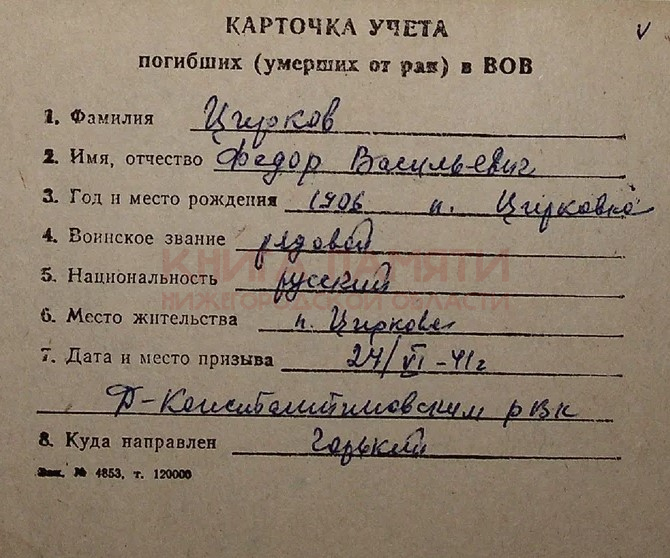 КАРТОЧКА УЧЕТА
погибших (умерших от ран) в ВОВ
1. Фамилия Цирков
2. Имя, отчество Федор Васильевич
3. Год и место рождения 1906 п.
4. Воинское звание рядовой
КНИГА ПАМЯТИ
5. Национальность русский
НИЖЕГОРОДСКОЙ ОБЛАСТИ
6. Место жительства п.
7. Дата и место призыва 24/VI-41г
Д-Константиновским рвк
8. Куда направлен Горький
Зак. № 4853, т. 120000